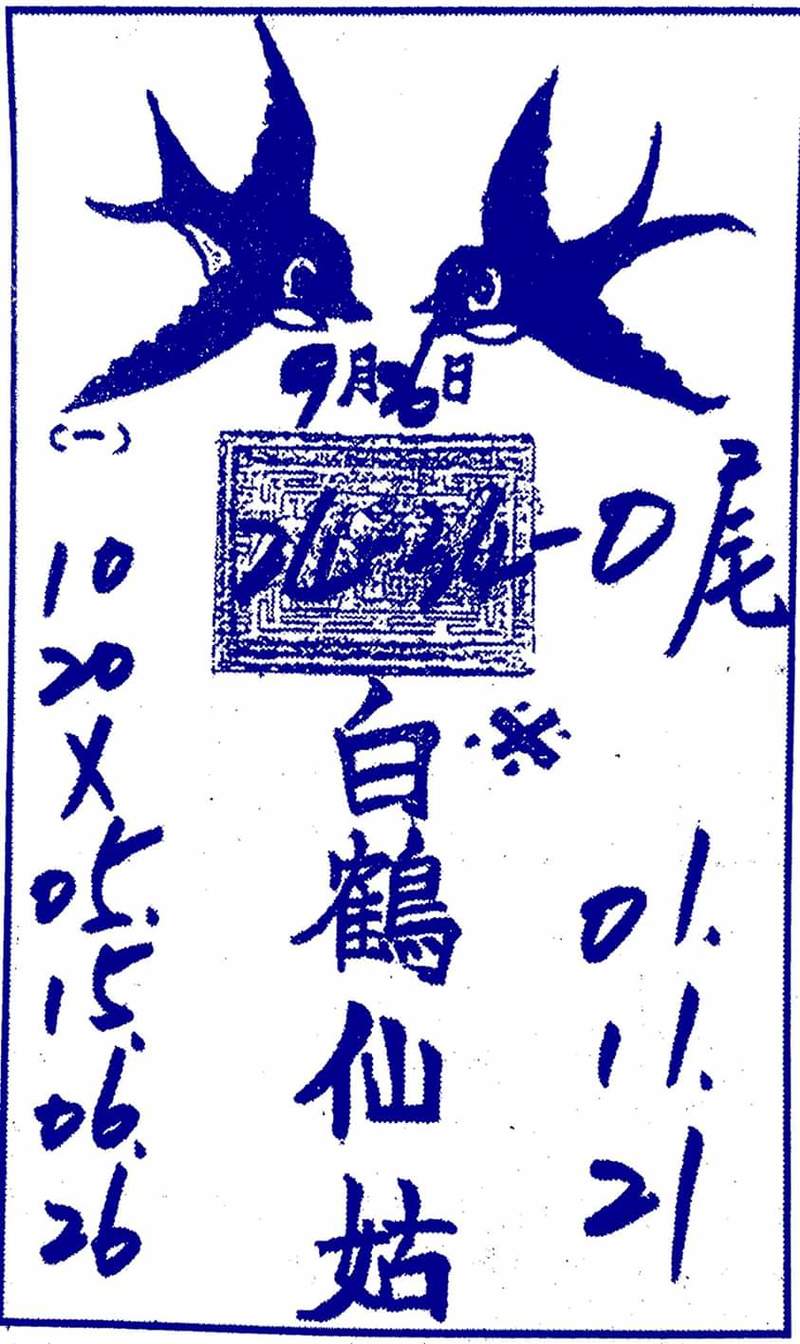 9月26日
(一)
10
20
X
05.
15.
06.
26
0尾
※
白鶴仙姑
01.
11.
21